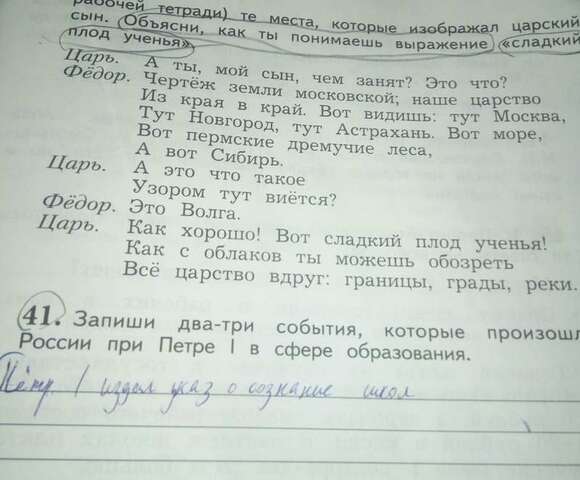 рабочей тетради) те места, которые изображал царский
сын. Объясни, как ты понимаешь выражение «сладкий
плод ученья».
Царь. А ты, мой сын, чем занят? Это что?
Фёдор. Чертёж земли московской; наше царство
Из края в край. Вот видишь: тут Москва,
Тут Новгород, тут Астрахань. Вот море,
Вот пермские дремучие леса,
А вот Сибирь.
Царь. А это что такое
Узором тут виётся?
Фёдор. Это Волга.
Царь. Как хорошо! Вот сладкий плод ученья!
Как с облаков ты можешь обозреть
Всё царство вдруг: границы, грады, реки.
41. Запиши два-три события, которые произошл
России при Петре I в сфере образования.
Пётр I издал указ о сознание школ